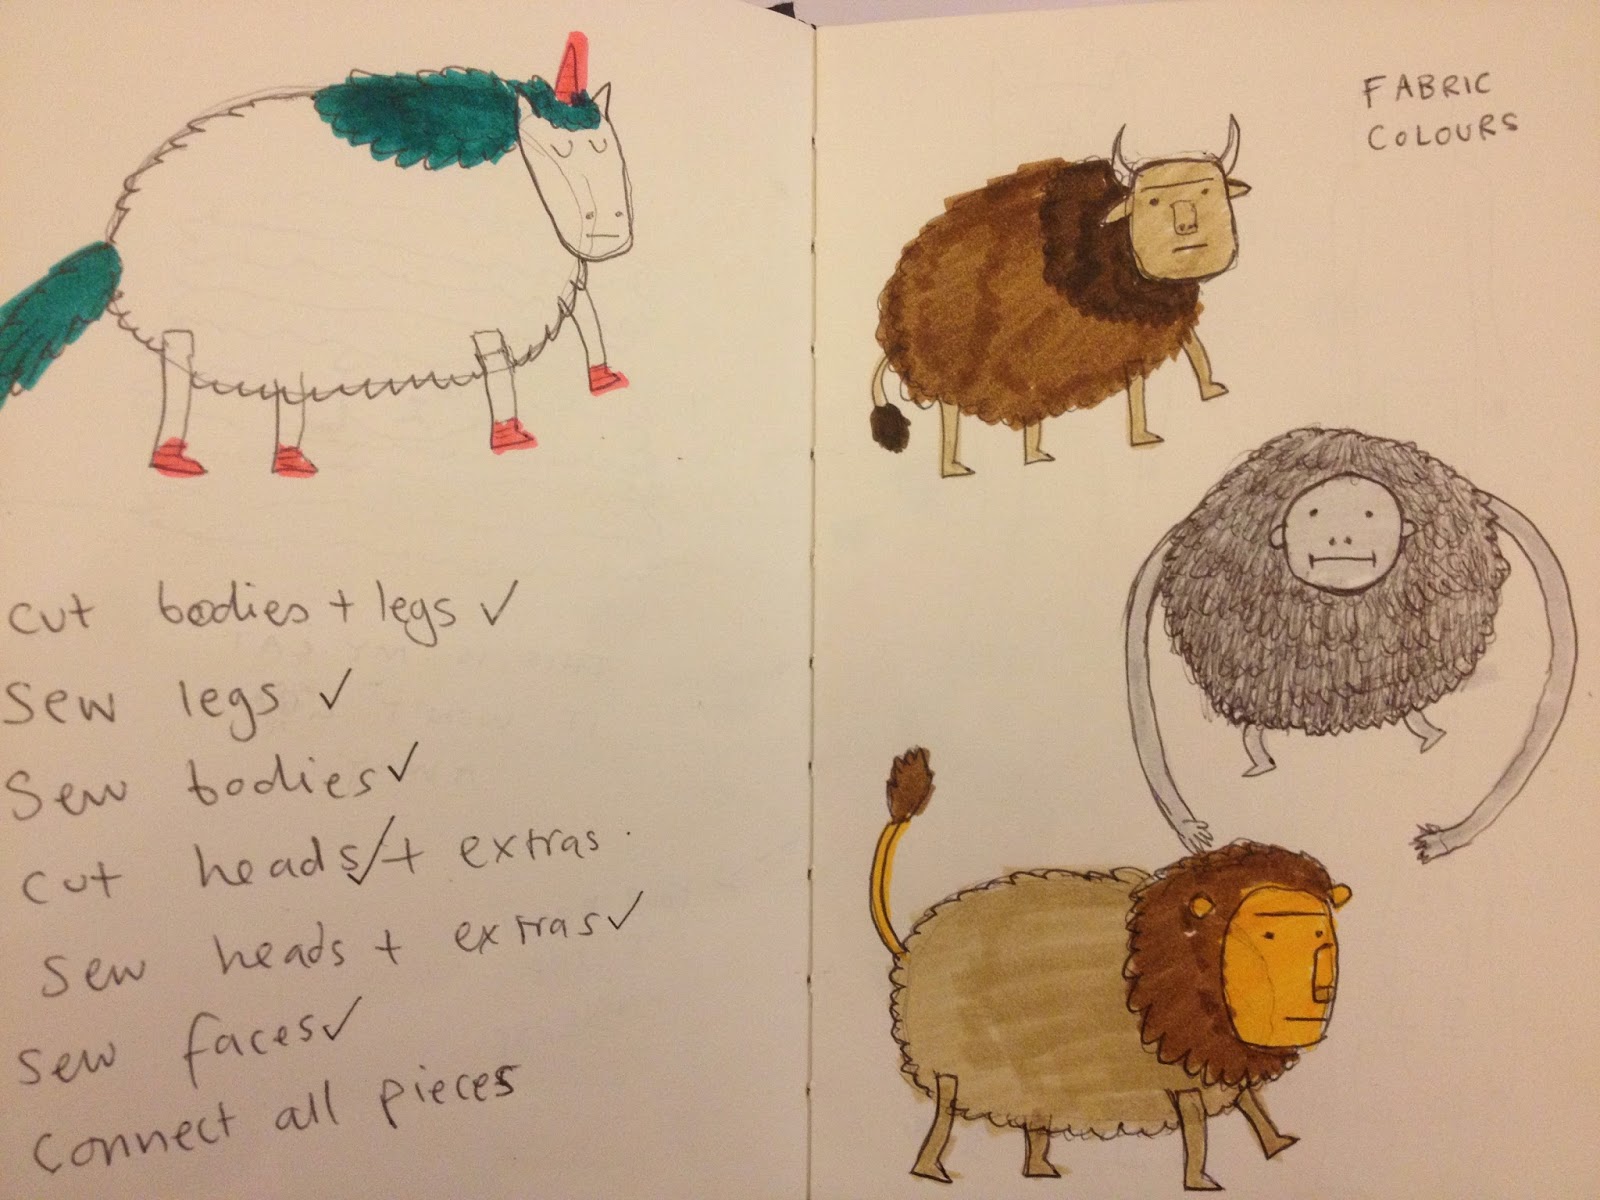 cut bodies + legs ✓
sew legs ✓
sew bodies ✓
cut heads ✓ + extras
sew heads + extras ✓
sew faces ✓
connect all pieces
FABRIC
COLOURS